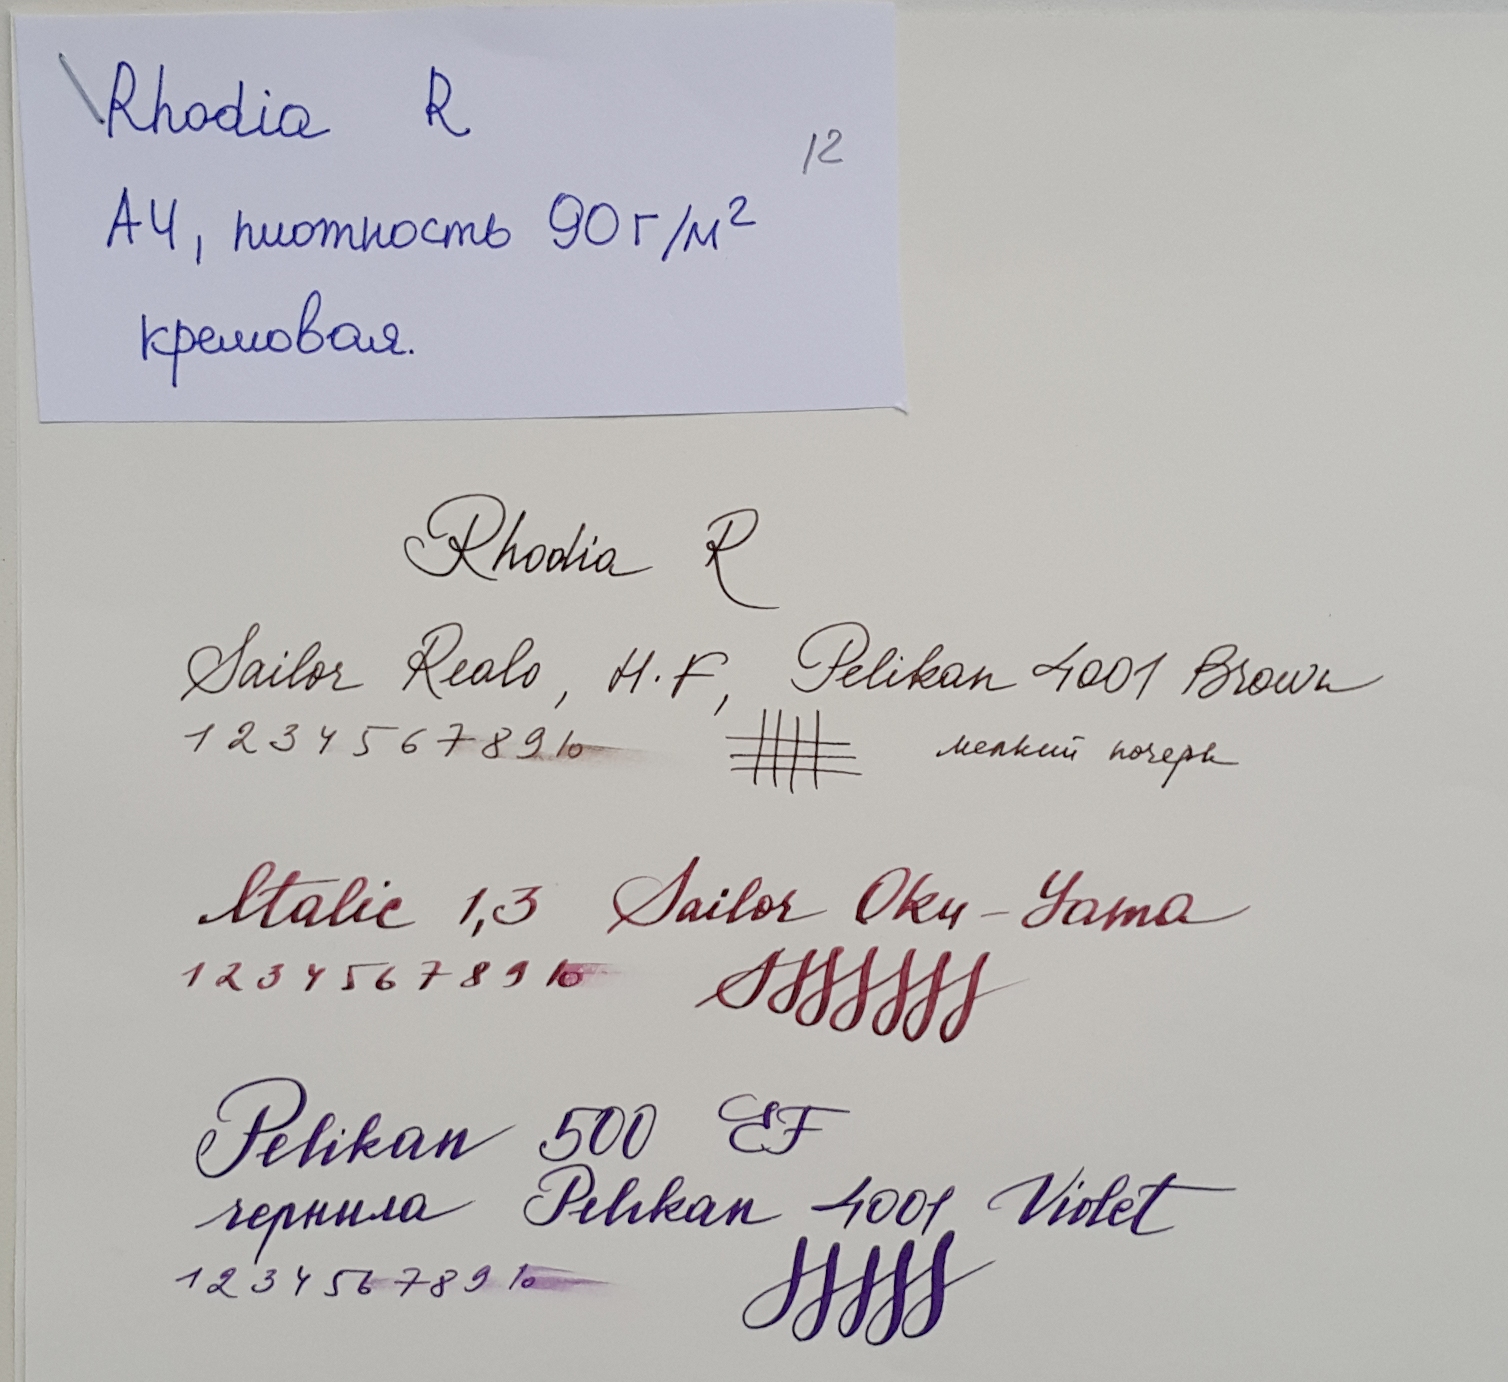 Rhodia R
12
А4, плотность 90 г/м²
кремовая.
Rhodia R
Sailor Realo, H.F, Pelikan 4001 Brown
1 2 3 4 5 6 7 8 9 10 мелкий почерк
Italic 1,3 Sailor Oku-Yama
1 2 3 4 5 6 7 8 9 10
Pelikan 500 EF
чернила Pelikan 4001 Violet
1 2 3 4 5 6 7 8 9 10